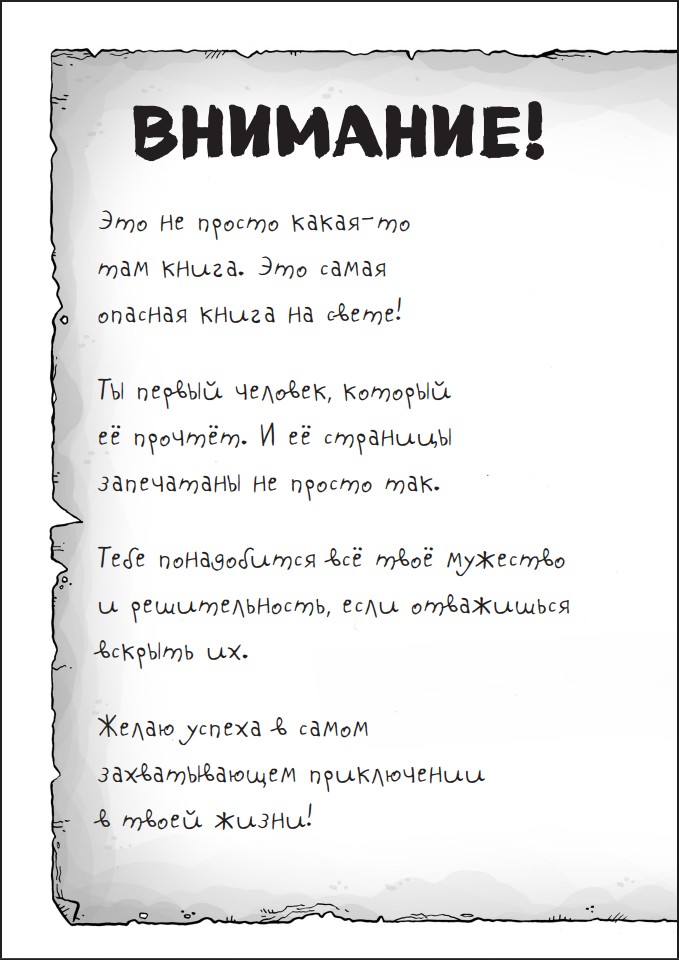 ВНИМАНИЕ!
Это не просто какая-то
там книга. Это самая
опасная книга на свете!
Ты первый человек, который
её прочтёт. И её страницы
запечатаны не просто так.
Тебе понадобится всё твоё мужество
и решительность, если отважишься
вскрыть их.
Желаю успеха в самом
захватывающем приключении
в твоей жизни!